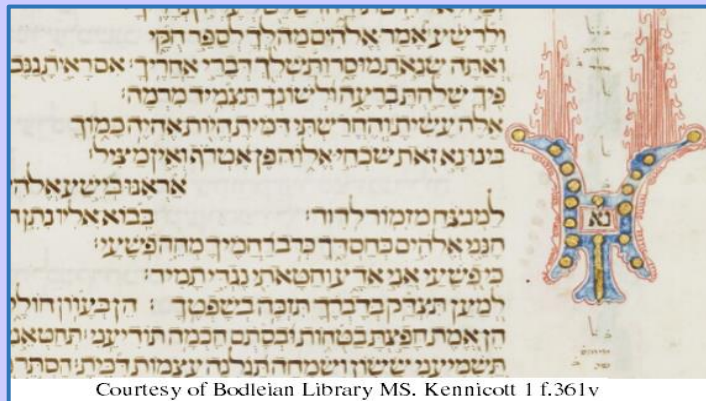 ולרשע אמר אלהים מה לך לספר חקי
ואתה שנאת מוסר ותשלך דברי אחריך: אם ראית גנב
פיך שלחת ברעה ולשונך תצמיד מרמה:
אלה עשית והחרשתי דמית היות אהיה כמוך
בינו נא זאת שכחי אלוה פן אטרף ואין מציל:
אראנו בישע אלהי
למנצח מזמור לדוד: בבוא אליו נתן
חנני אלהים כחסדך כרב רחמיך מחה פשעי:
כי פשעי אני אדע וחטאתי נגדי תמיד:
למען תצדק בדברך תזכה בשפטך: הן בעוון חולל
הן אמת חפצת בטחות ובסתם חכמה תודיעני: תחטא
תשמיעני ששון ושמחה תגלנה עצמות דכית: הסתר
נא
Courtesy of Bodleian Library MS. Kennicott 1 f.361v